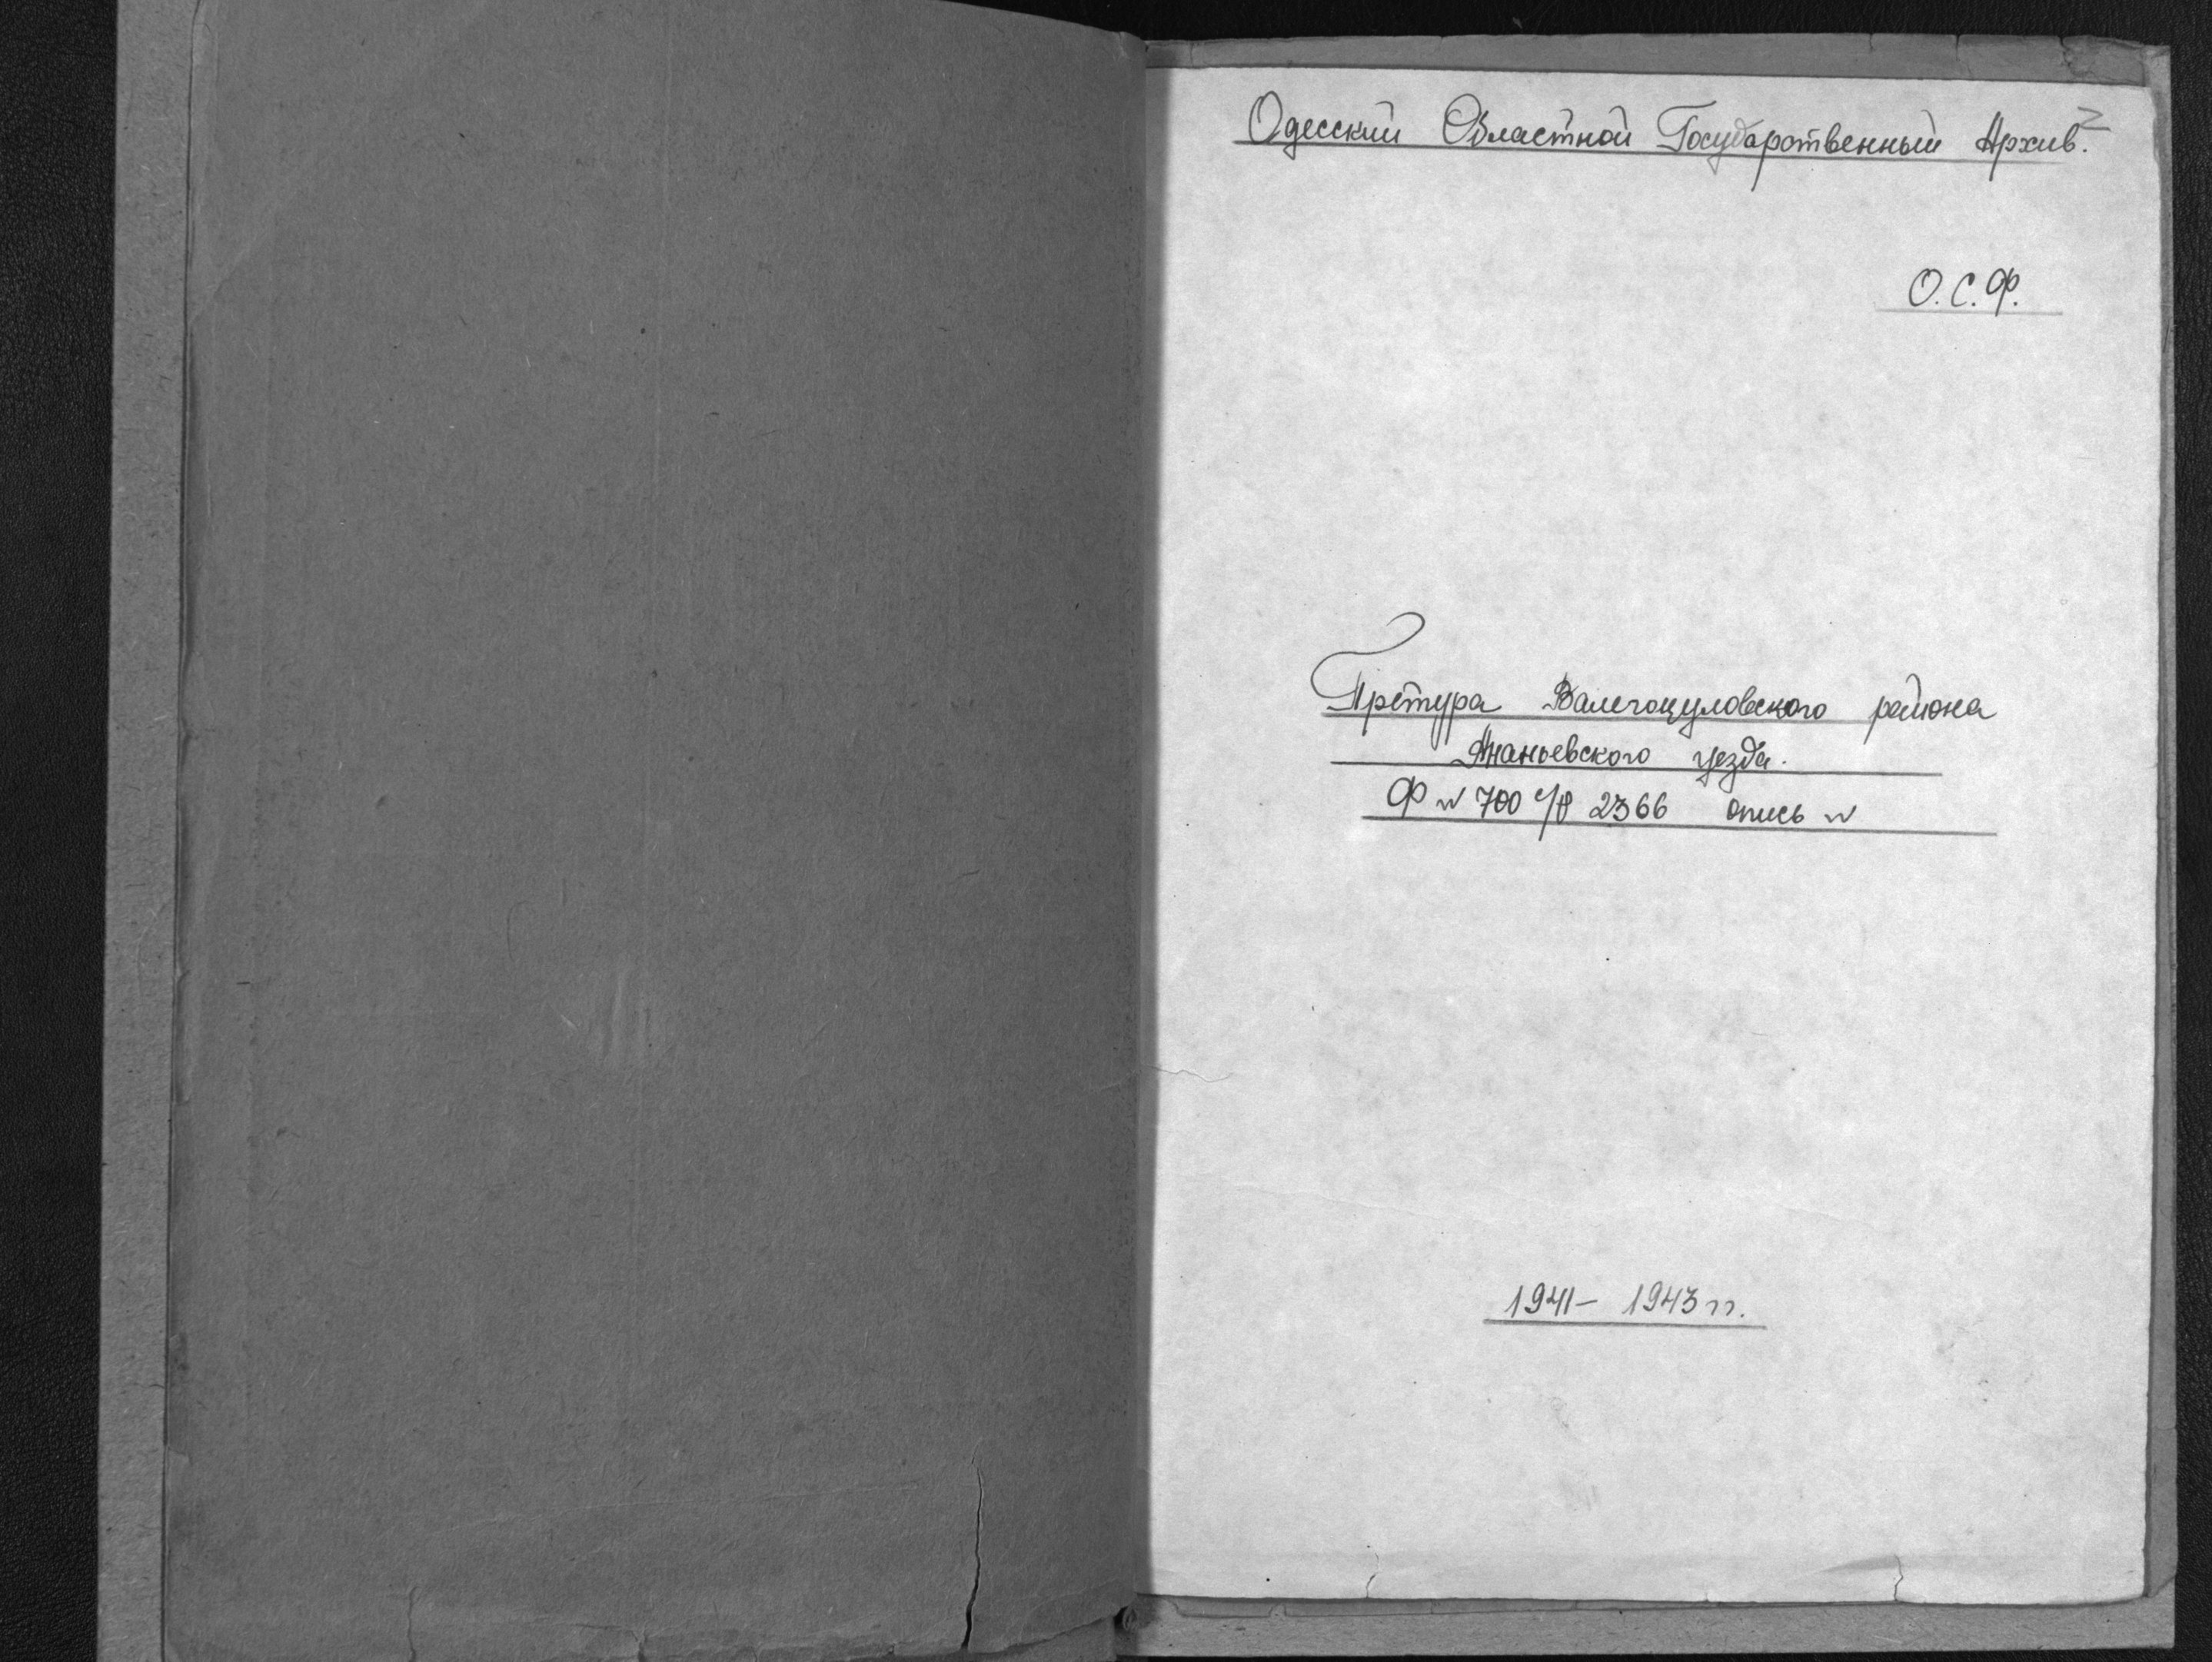 Одесский Областной Государственный Архив.
2
О.С.Ф.
Претура Валегоцуловского района
Ананьевского уезда.
Ф № 700 с/ф 2366 опись №
1941 - 1943 гг.